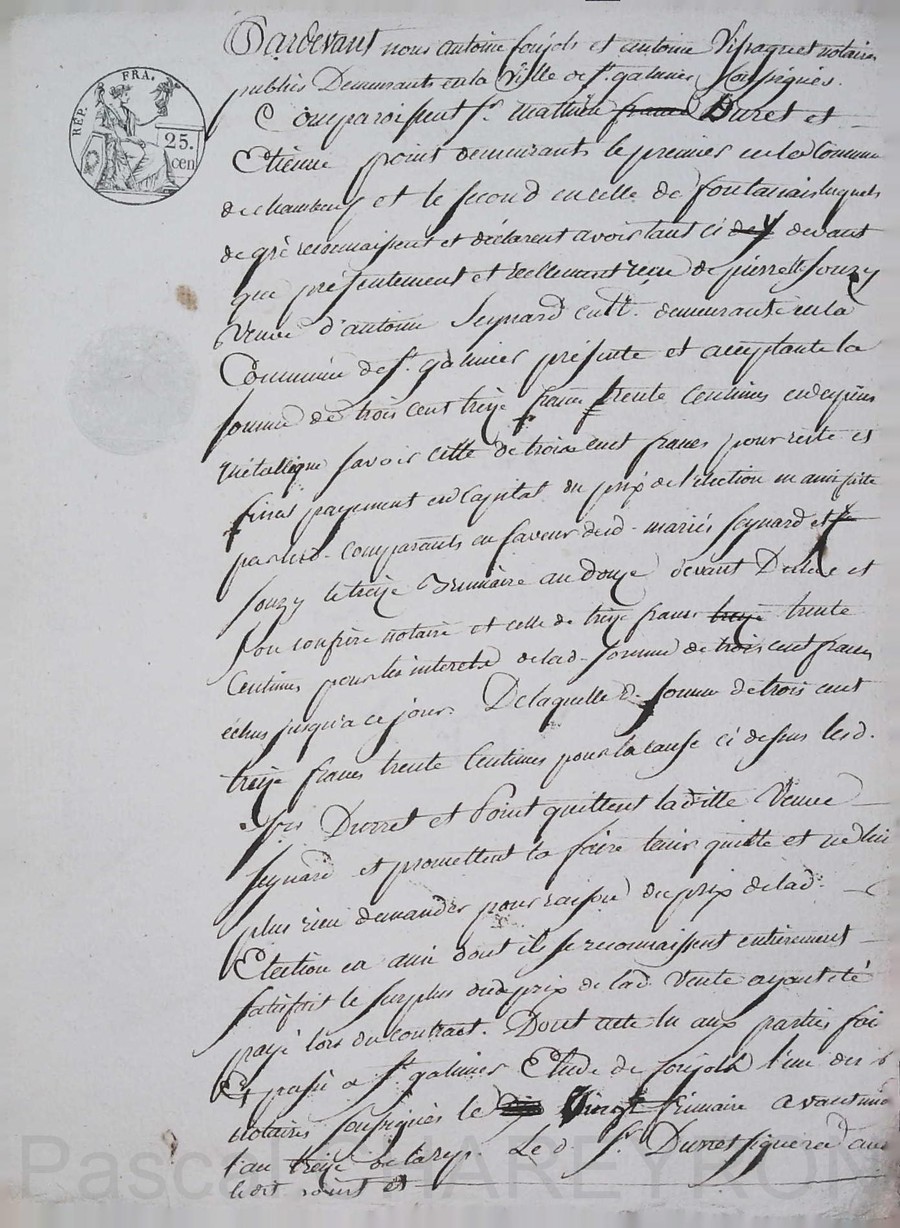 REP. FRA.
25.
cen
Pardevant nous antoine foujols et antoine notaires
publics Demeurants en la Ville de st. galmier soussignés.
Comparoissent sr. mathieu Duret et
Etienne point demeurants le premier en la Commune
de chambeuf et le second en celle de fontanais lesquels
de gré reconnaissent et déclarent avoir tant ci devant
que présentement et réellement reçu de pierrette Souzy
Veuve d'antoine Seynard cultr. demeurante en la
Commune de st. galmier présente et acceptante la
somme de trois cent treize francs trente Centimes en espèces
métallique savoir celle de trois cent francs pour reste et
final payement en Capital du prix de l'élection en ami faite
par lesd. comparants en faveur desd. mariés Seynard et
Souzy le treize frimaire an douze devant et
son confrère notaire et celle de treize francs treize trente
Centimes pour les interets de lad. somme de trois cent francs
échus jusqu'a ce jour. De laquelle d. somme de trois cent
treize francs trente Centimes pour la cause ci dessus lesd.
srs. Durret et Point quittent ladite Veuve
Seynard et promettent la faire tenir quitte et ne lui
plus rien demander pour raison du prix de lad.
Election en ami dont ils se reconnaissent entièrement
satisfait le surplus dud. prix de lad. Vente ayant été
payé lors du contract. Dont acte lu aux parties fai
Et passé a st. galmier Etude de foujols l'un des d
notaires soussignés le vingt frimaire avant midi
l'an treize de la rep. Le d. sr. Durret signera
ledit point et
Pascal CHAREYRON